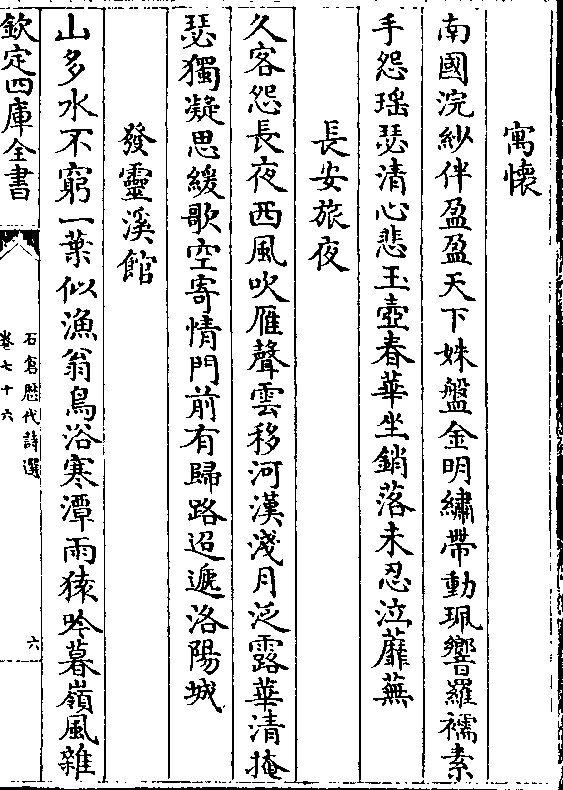 寓懷
南國浣紗伴盈盈天下姝盤金明繡帶動珮響羅襦素
手怨瑶瑟清心悲玉壺春華坐銷落未忍泣蘼蕪
長安旅夜
久客怨長夜西風吹雁聲雲移河漢淺月泛露華清掩
瑟獨凝思緩歌空寄情門前有歸路迢遞洛陽城
發靈溪館
山多水不窮一葉似漁翁鳥浴寒潭雨猿吟暮嶺風雜
欽定四庫全書
石倉歴代詩選
卷七十六
六